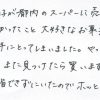 子が都内のスーパーに売
かったこと 大好きなお菓
手にとってしまいましたや
また見つけたら買います
着できずにいたので ホッと